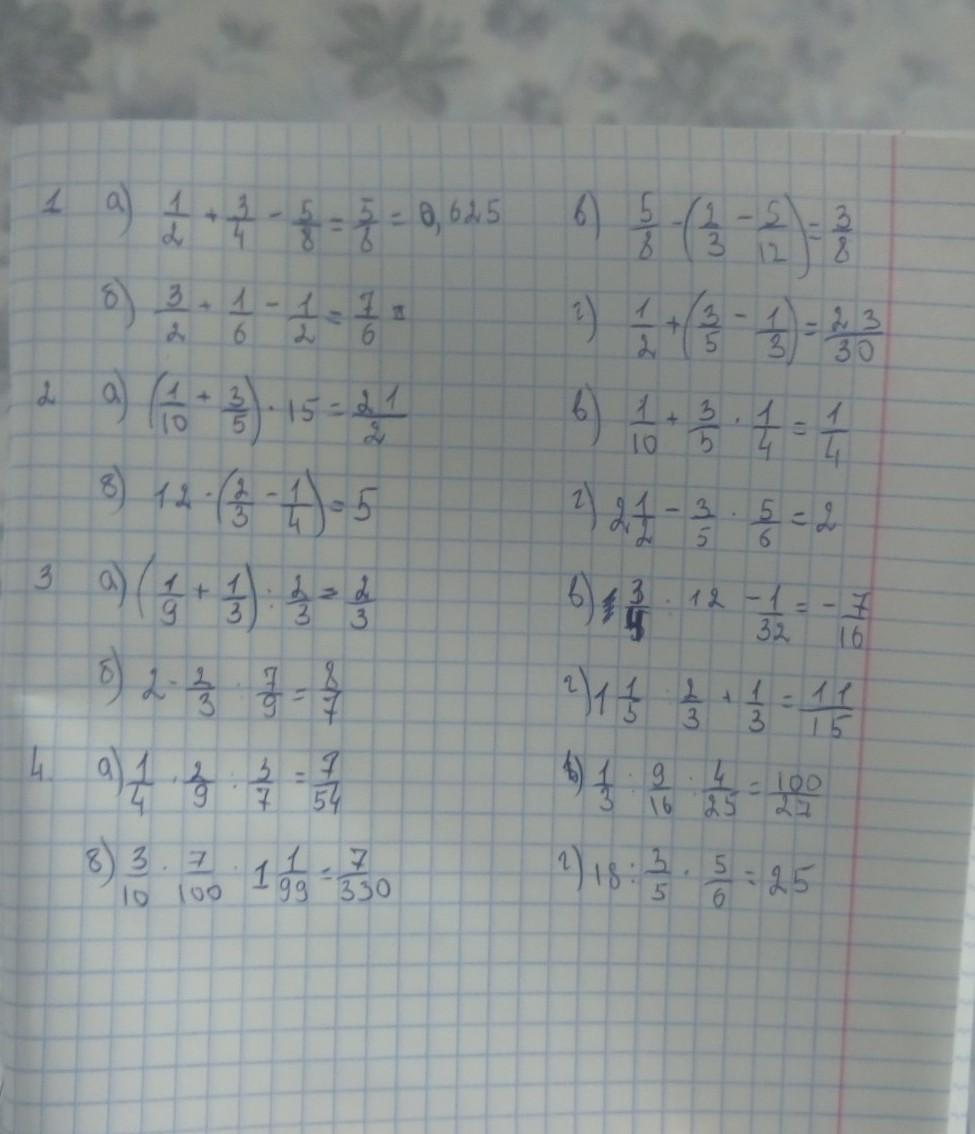 1 а) 1/2 + 3/4 - 5/8 = 5/8 = 0,625 в) 5/8 - (2/3 - 5/12) = 3/8
б) 3/2 + 1/6 - 1/2 = 7/6 = г) 1/2 + (3/5 - 1/3) = 23/30
2 а) (1/10 + 3/5) · 15 = 21/2 в) 1/10 + 3/5 · 1/4 = 1/4
б) 12 · (2/3 - 1/4) = 5 г) 2 1/2 - 3/5 · 5/6 = 2
3 а) (1/9 + 1/3) : 2/3 = 2/3 в) 3/4 : 12 - 1/32 = - 7/16
б) 2 · 2/3 : 7/9 = 8/7 г) 1 1/5 2/3 + 1/3 = 11/15
4. а) 1/4 · 2/9 : 3/7 = 7/54 в) 1/3 : 9/16 : 4/25 = 100/27
б) 3/10 · 7/100 · 1 1/99 = 7/330 г) 18 : 3/5 · 5/6 = 25